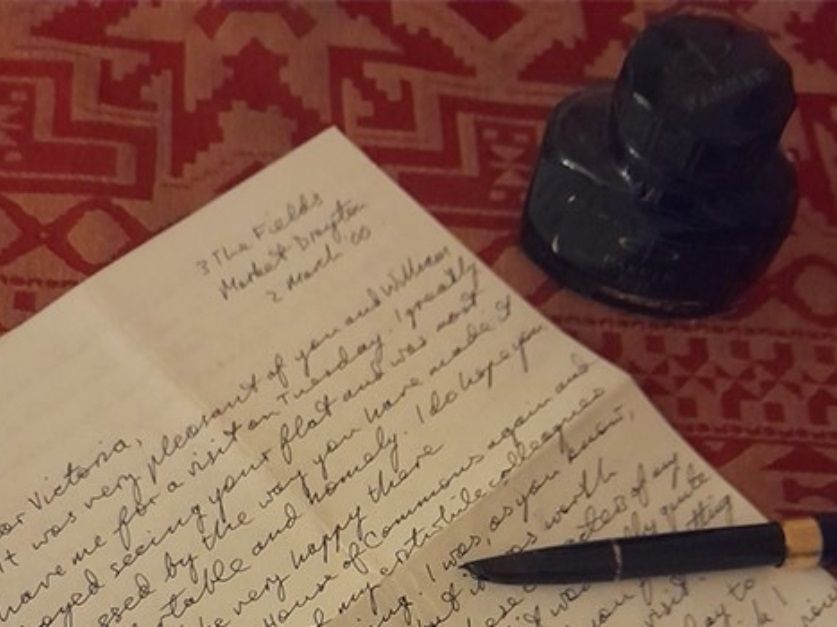 3 The Fields
Market Drayton
2 March '00
ar Victoria,
It was very pleasant of you and William
have me for a visit on Tuesday. I greatly
oyed seeing your flat and was most
ssed by the way you have made it
rtable and homely. I do hope you
be very happy there
House of Commons again and
d my erstwhile colleagues
ing. I was, as you know,
but it was worth
of my
quite
visit.
to
PARKER